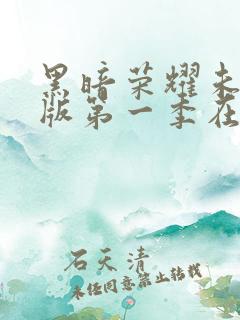 黑暗荣耀未
版第一季在
石天清
未经同意禁止转载